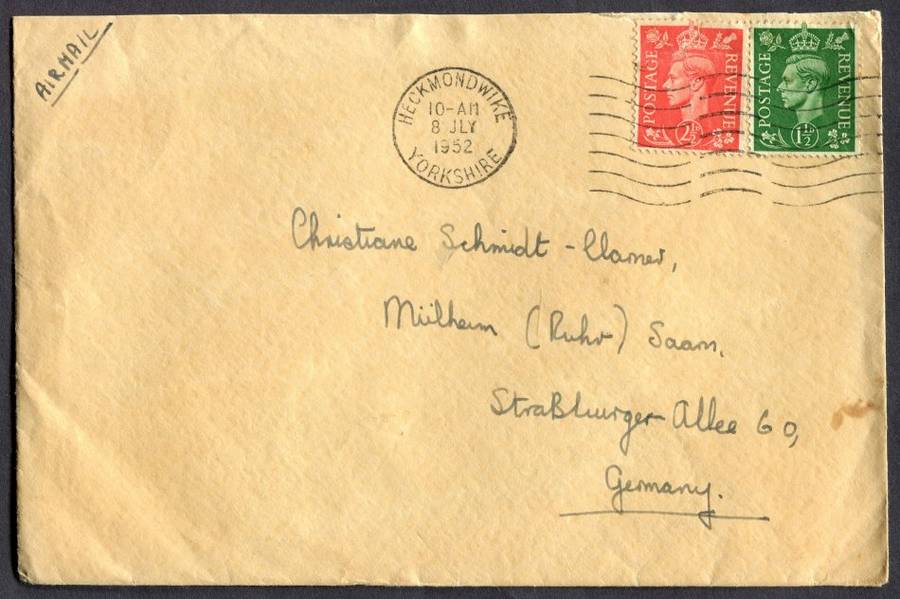 AIRMAIL
HECKMONDWIKE
10-AM
8 JLY
1952
YORKSHIRE
POSTAGE REVENUE
2½D
POSTAGE REVENUE
1½D
Christiane Schmidt-
Mülheim (Ruhr) Saarn,
Straßburger Allee 60,
Germany.